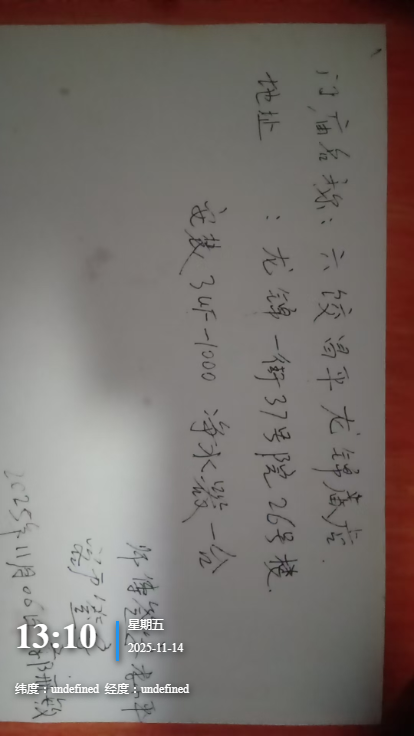 门店名称：六饺昌平龙锦苑店.
地址：龙锦一街37号院26号楼.
安装3UF-1000净水器一台
2025年11月06日
13:10
星期五
2025-11-14
纬度：undefined 经度：undefined